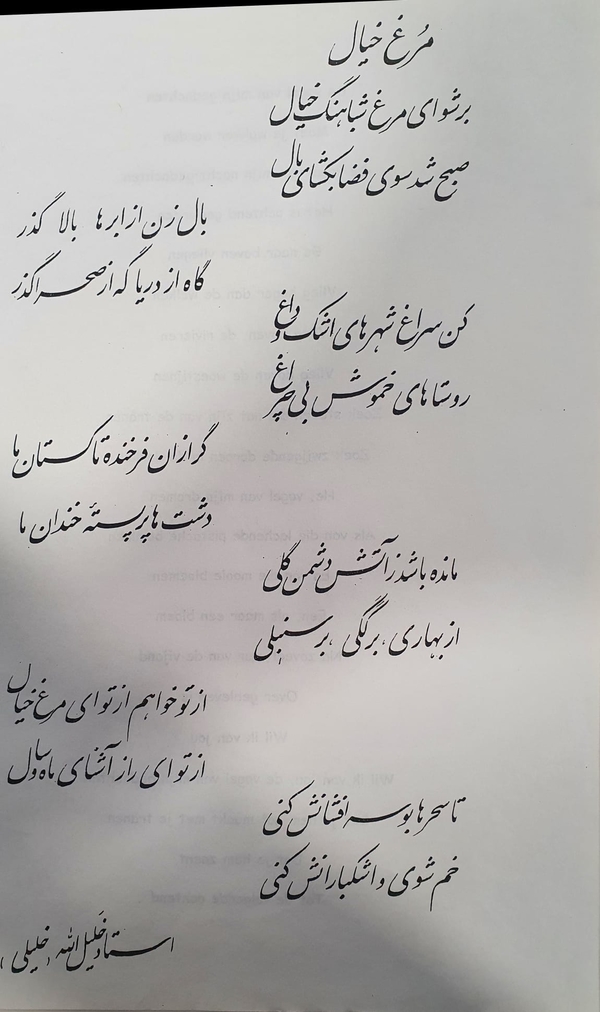 مُرغ خیال
برشو ای مرغ شباهنگ خیال
صبح شد سوی فضا بکشای بال
بال زن از ابر ها بالا گذر
گاه از دریا گه از صحرا گذر
کن سراغ شهرهای اشک و داغ
روستاهای خموش بی چراغ
گر از ان فرخنده تاکستان ما
دشت ها پر پستهٔ خندان ما
مانده باشد ز آتش دشمن گلی
از بهاری، برگگی، بر سنبلی
از تو خواهم از تو ای مرغ خیال
از تو ای راز آشنای ماه و سال
تا سحرها بوسه افشانش کنی
خم شوی و اشکبارانش کنی
استاد خلیل الله (خلیلی)